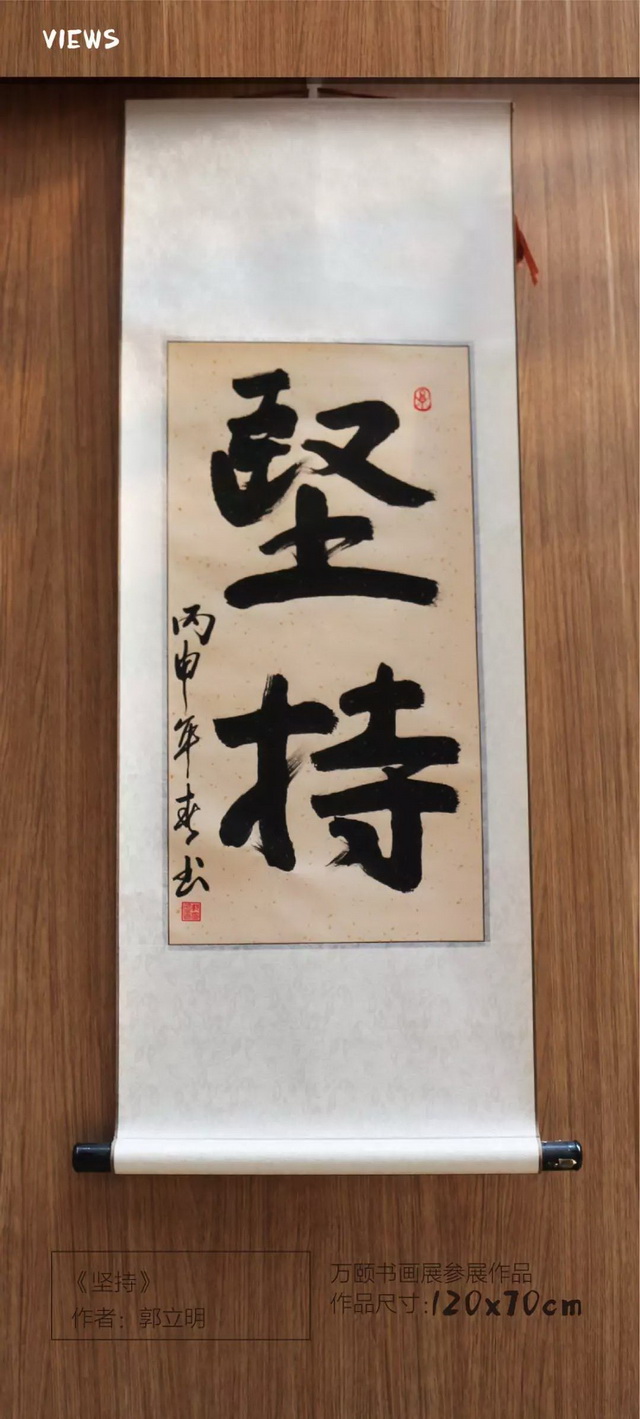 VIEWS
堅持
丙申年春书
《坚持》
作者：郭立明
万颐书画展参展作品
作品尺寸:120x70cm